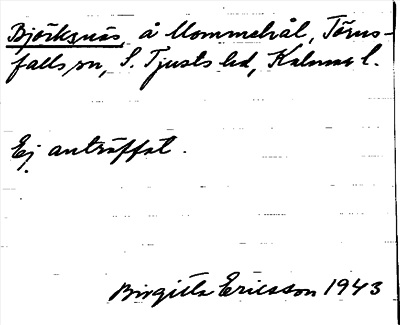 Björksnäs, å Mommehål, Törns-
falls sn, S. Tjusts hd, Kalmar l.
Ej anträffat.
Birgitta Ericsson 1943